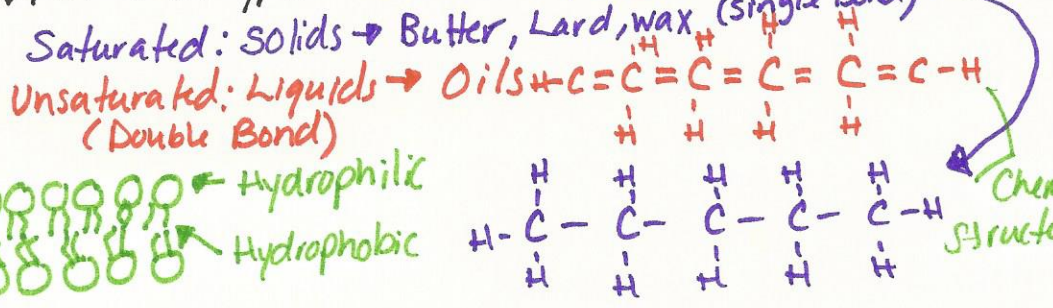 Saturated: Solids → Butter, Lard, wax (single bond)
Unsaturated: Liquids → Oils
(Double Bond)
H H H H
H-C=C=C=C=C=C-H
H H H H
Hydrophilic
Hydrophobic
H H H H H
H-C-C-C-C-C-H
H H H H H